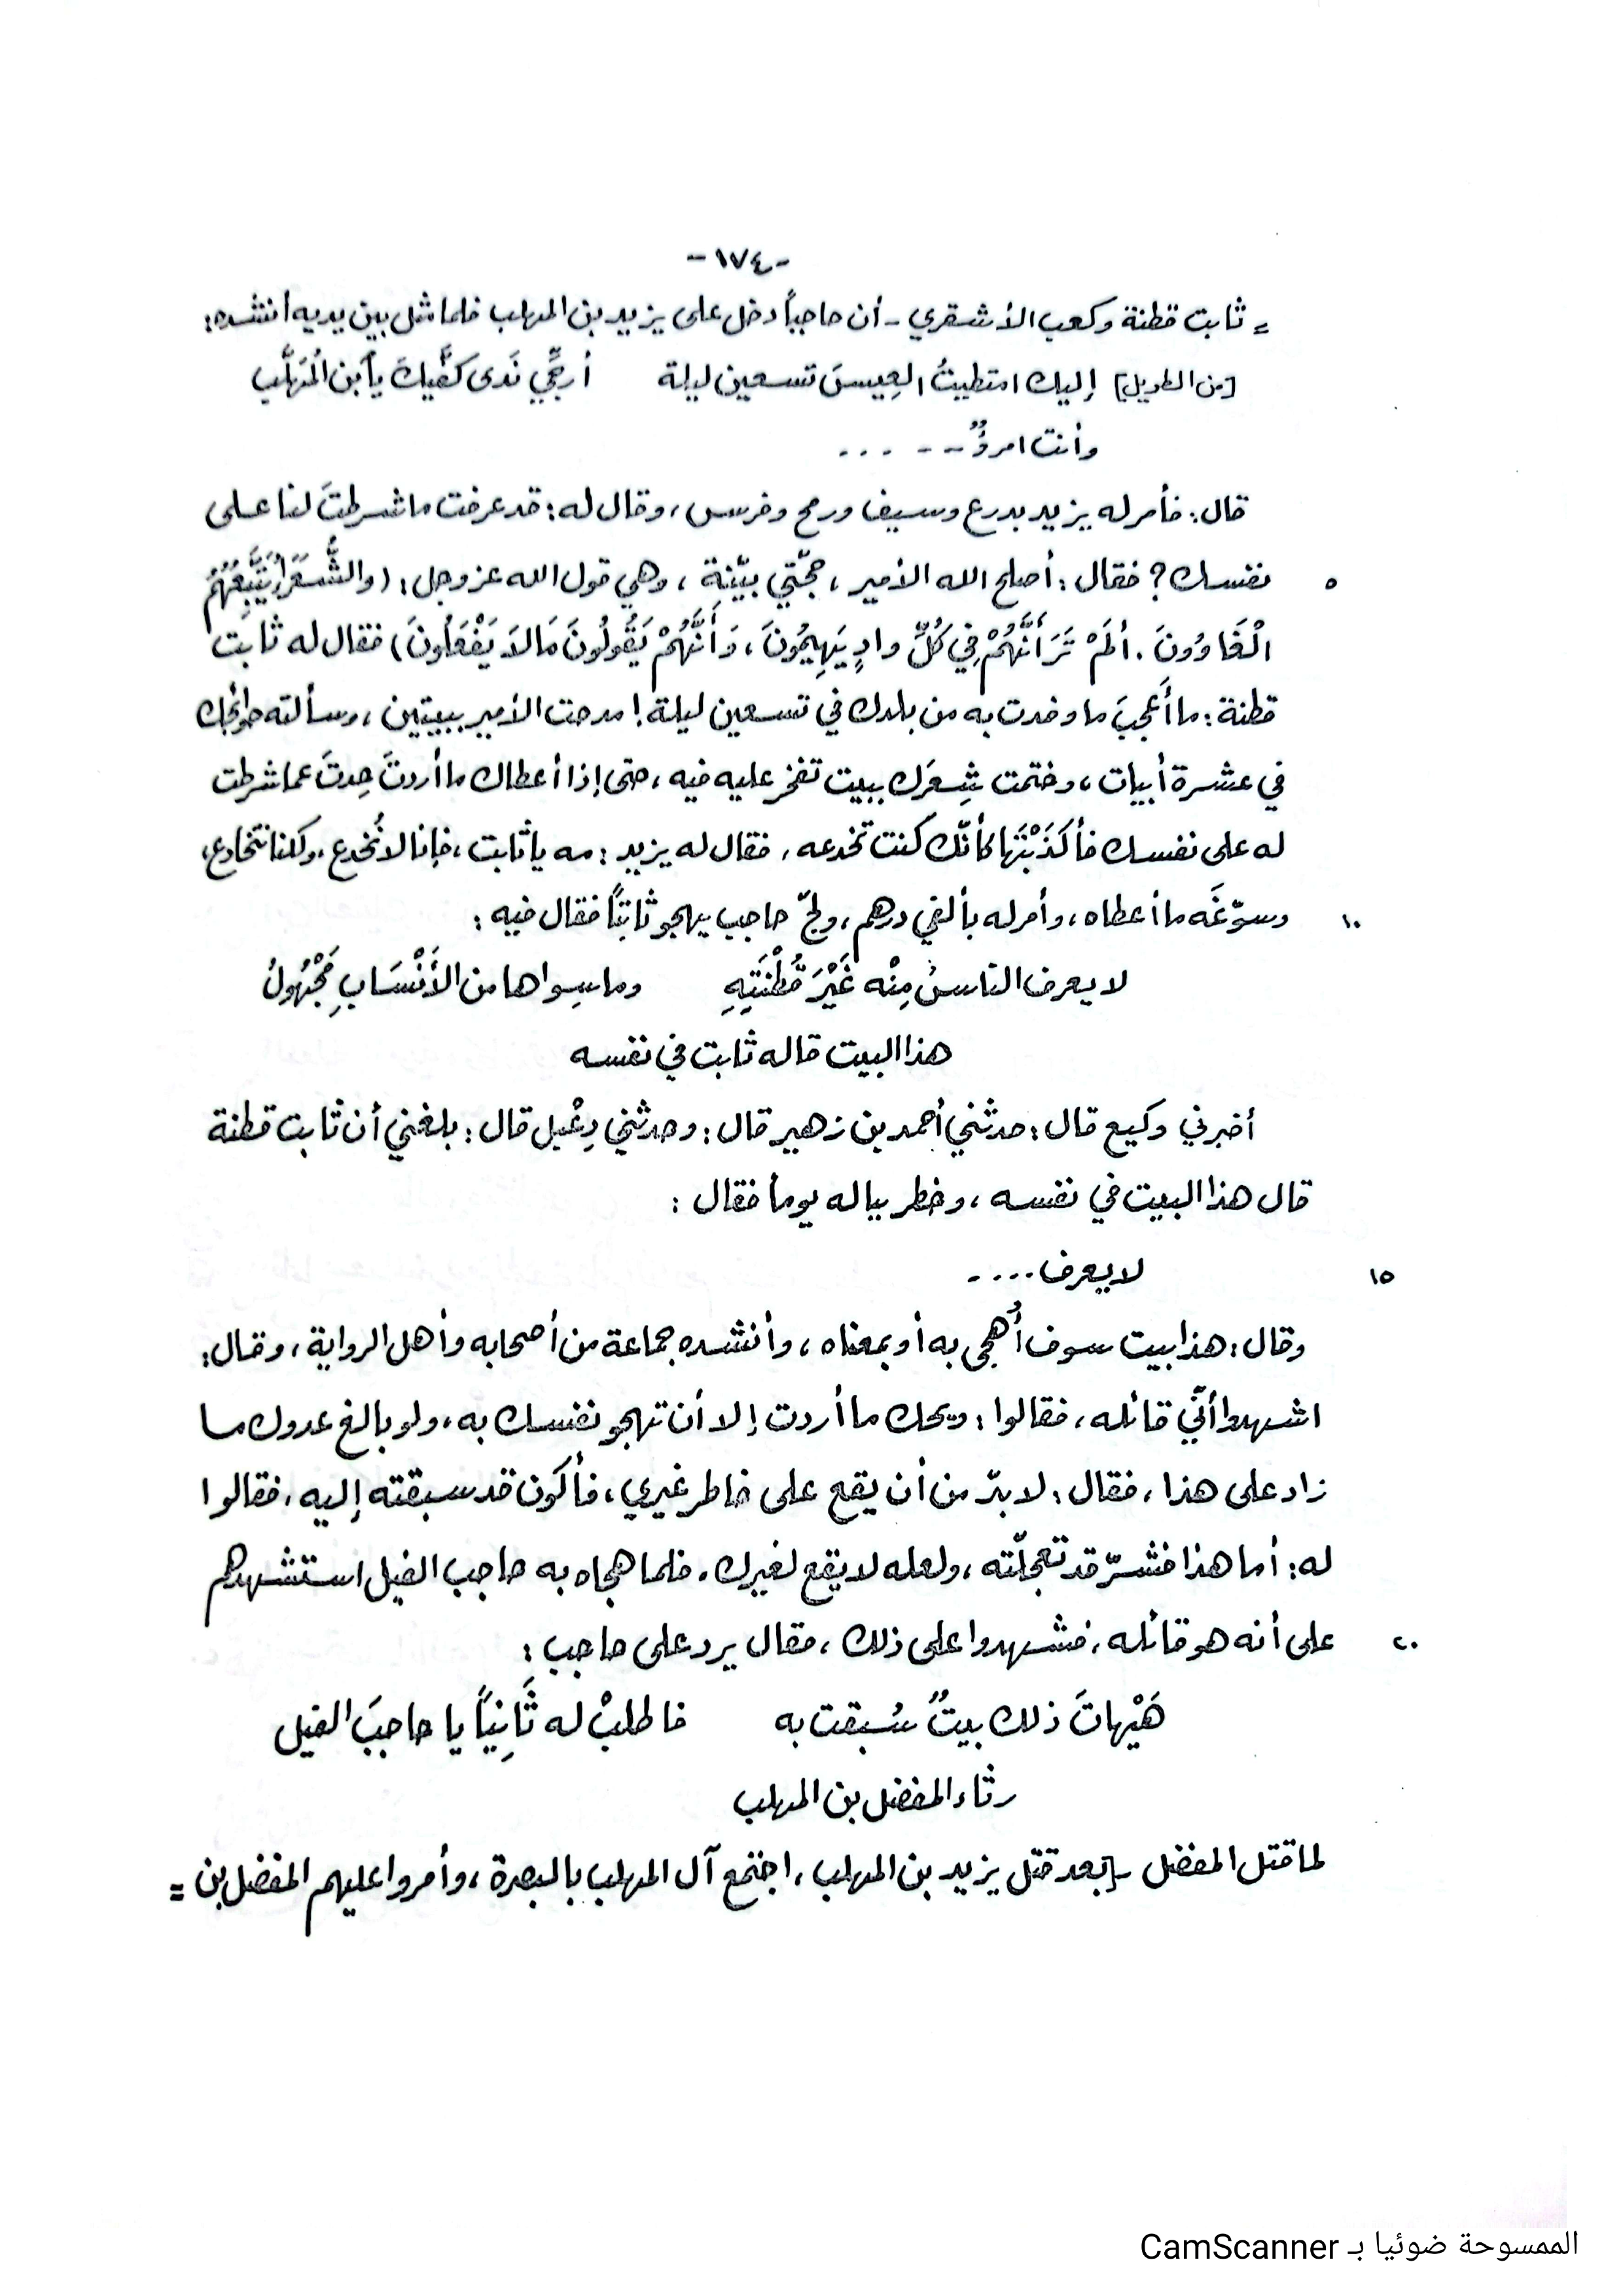 -١٧٤-
= ثابت قطنة وكعب الأشقري - أن حاجباً دخل على يزيد بن المهلب فلما مثل بين يديه أنشده:
[من الطويل] إليك امتطيتُ العِيسَ تسعين ليلة أرجِّي نَدَى كفَّيكَ يا آبن المُهَلَّب
وأنت امرؤٌ -- ...
قال: فأمر له يزيد بدرع وسيف ورمح وفرس، وقال له: قد عرفت ما شرطتَ لنا على
٥ نفسك؟ فقال: أصلح الله الأمير، حجّتي بيّنة، وهي قول الله عز وجل: (والشُّعَرَاءُ يَتَّبِعُهُمُ
الْغَاوُونَ. ألَمْ تَرَ أَنَّهُمْ فِي كُلِّ وادٍ يَهِيمُونَ، وَأَنَّهُمْ يَقُولُونَ مَا لاَ يَفْعَلُونَ) فقال له ثابت
قطنة: ما أَعجبَ ما وفدت به من بلدك في تسعين ليلة! مدحت الأمير ببيتين، وسألته حوائجك
في عشرة أبيات، وختمت شِعرَك ببيت تفخر عليه فيه، حتى إذا أعطاك ما أردتَ حِدتَ عما شرطت
له على نفسك فأكذَبْتَها كأنّك كنت تخدعه، فقال له يزيد: مه يا ثابت، فإنا لا نُخدع، ولكنا نتخادع،
١٠ وسوّغَه ما أعطاه، وأمر له بألفي درهم، ولجّ حاجب يهجو ثابتاً فقال فيه:
لا يعرف الناسُ مِنْه غَيْرَ قُطْنَتِهِ وما سِواها من الأَنْسَابِ مَجْهُولُ
هذا البيت قاله ثابت في نفسه
أخبرني وكيع قال: حدثني أحمد بن زهير قال: وحدثني دِعْبل قال: بلغني أن ثابت قطنة
قال هذا البيت في نفسه، وخطر بباله يوماً فقال:
١٥ لا يعرف....
وقال: هذا بيت سوف أُهجى به أو بمعناه، وأنشده جماعة من أصحابه وأهل الرواية، وقال:
اشهدوا أنّي قائله، فقالوا: ويحك ما أردت إلا أن تهجو نفسك به، ولو بالغ عدوك ما
زاد على هذا، فقال: لا بدّ من أن يقع على خاطر غيري، فأكون قد سبقته إليه، فقالوا
له: أما هذا فشرّ قد تعجلّته، ولعله لا يقع لغيرك. فلما هجاه به حاجب الفيل استشهدهم
٢٠ على أنه هو قائله، فشهدوا على ذلك، فقال يرد على حاجب:
هَيْهاتَ ذلك بيتٌ سُبقت به فاطلبْ له ثَانِياً يا حاجبَ الفيل
رثاء المفضل بن المهلب
لما قتل المفضل بعد قتل يزيد بن المهلب، اجتمع آل المهلب بالبصرة، وأمروا عليهم المفضل بن =
الممسوحة ضوئيا بـ CamScanner